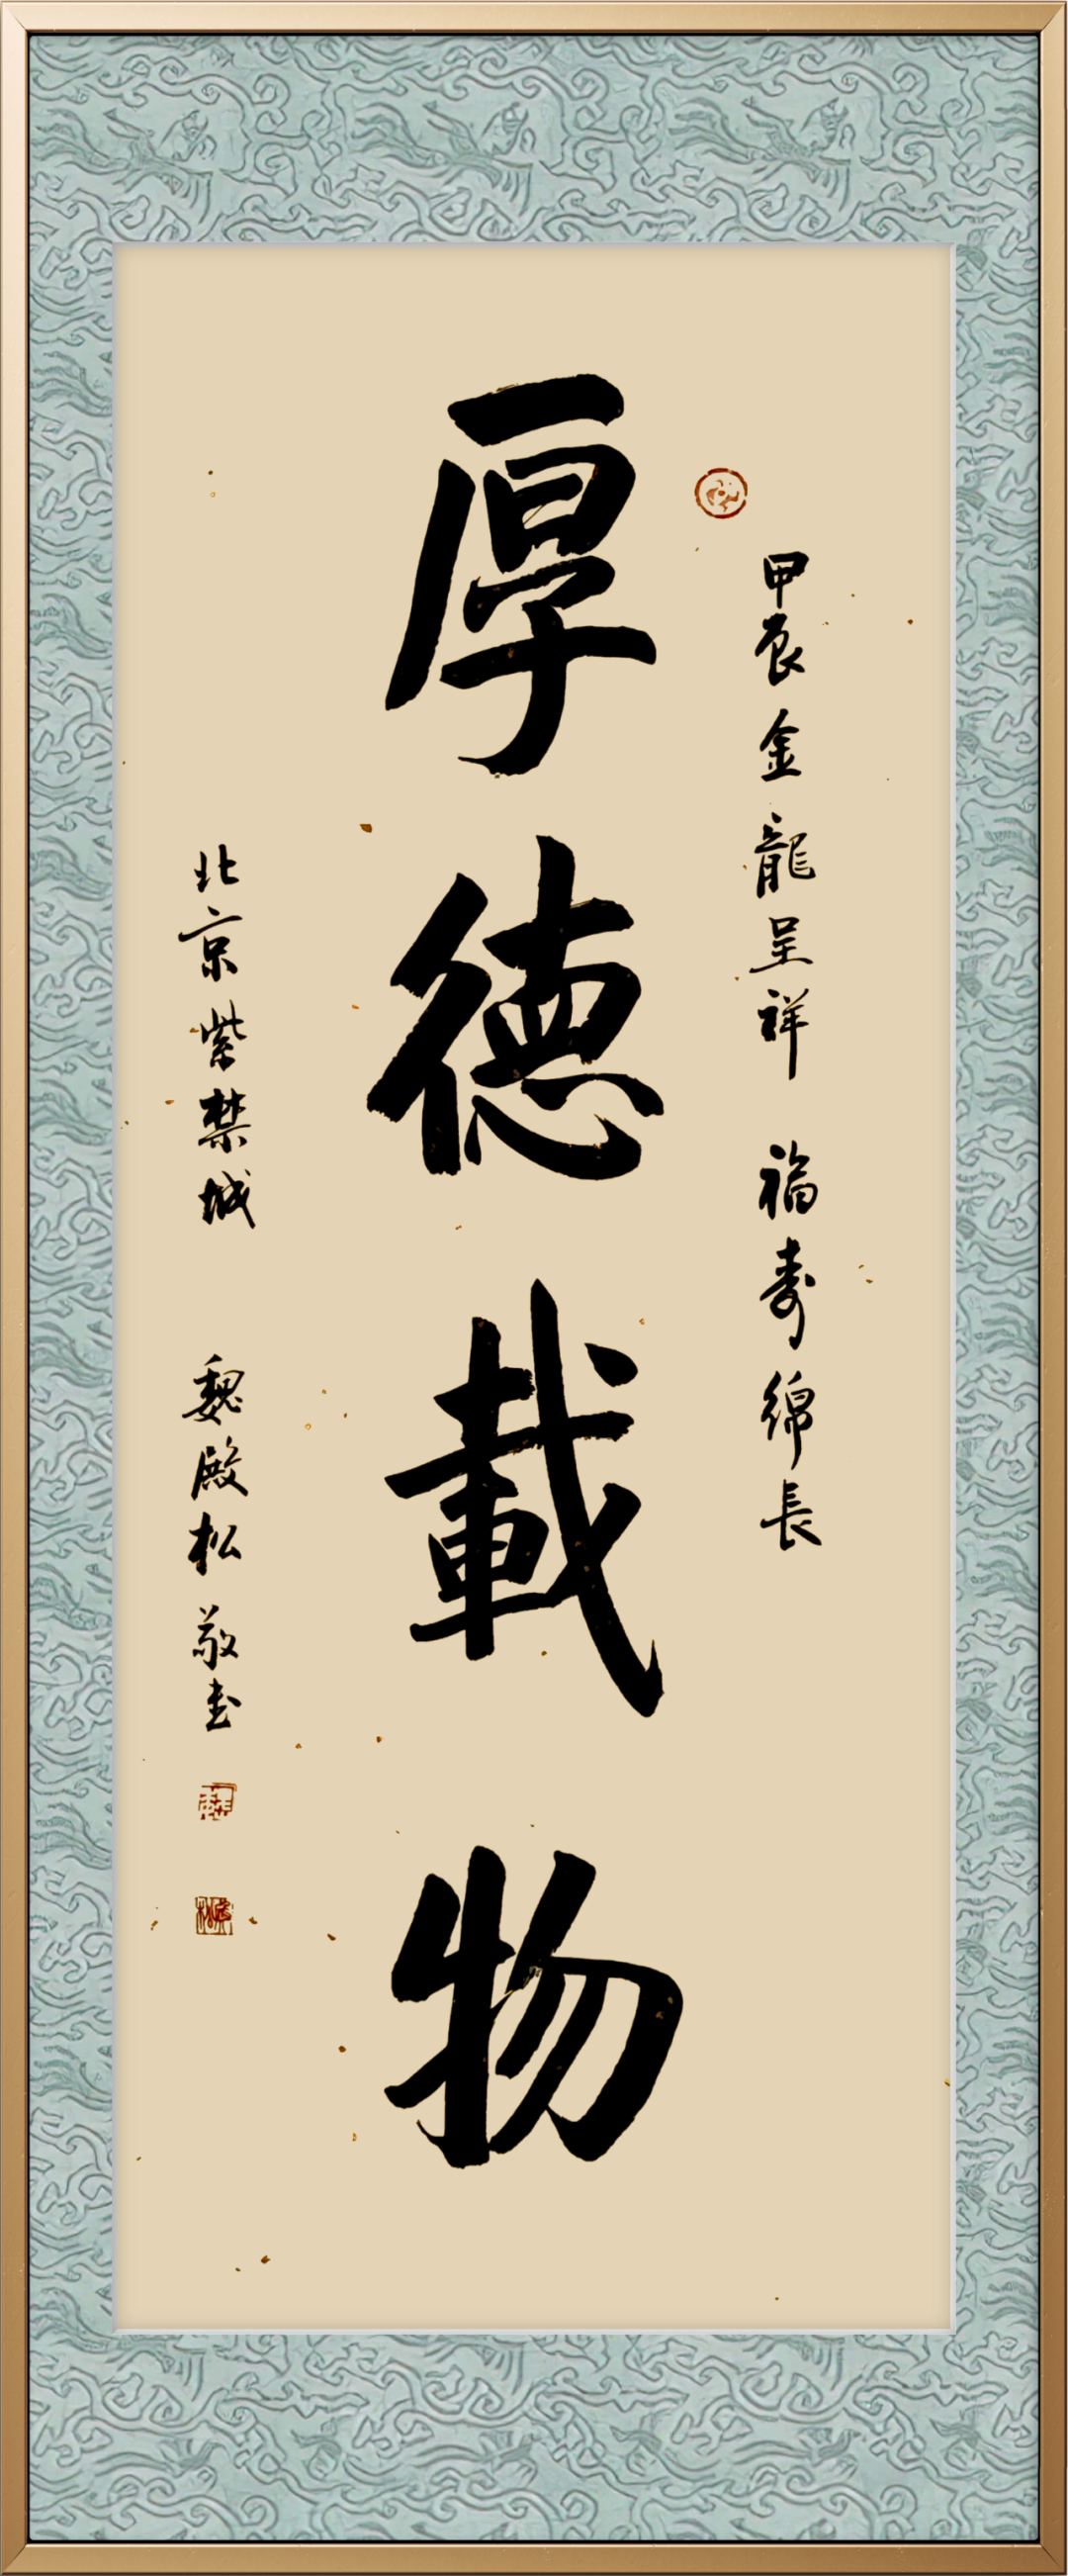 甲辰金龍呈祥 福寿綿長
厚德載物
北京紫禁城 魏殿松敬书